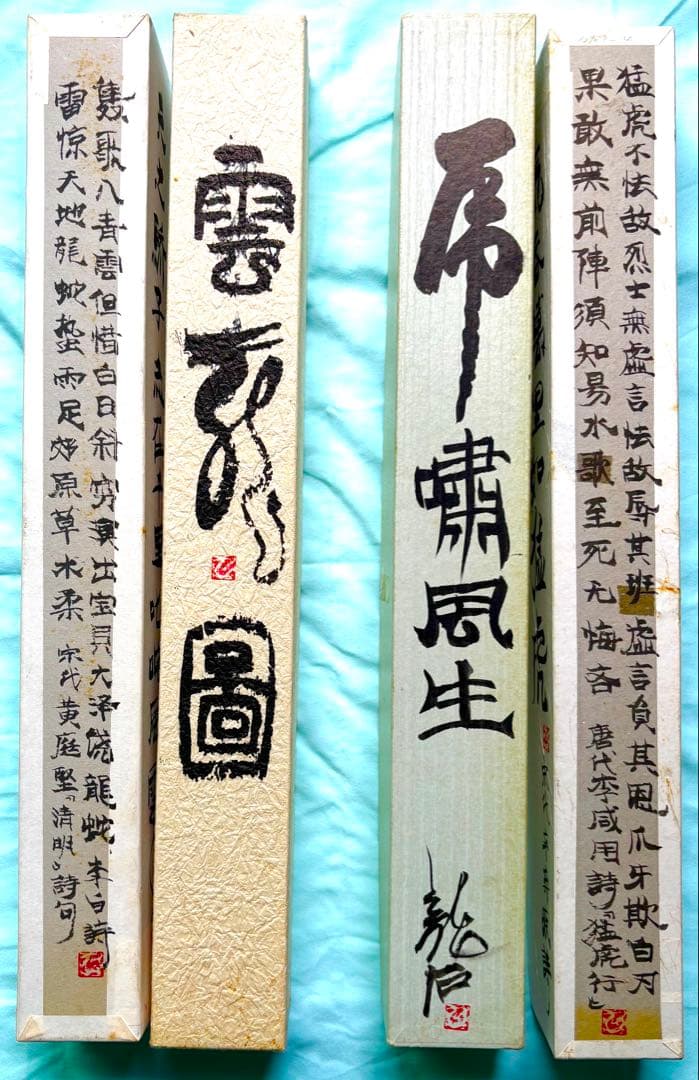 猛虎不怯敌烈士無虚言怯敌辱其班虚言負其恩爪牙欺白刃
果敢無前陣須知易水歌至死无悔吝 唐代李咸用詩「猛虎行」
虎嘯風生
龍石
雲龍圖
隻歌入青雲但惜白日斜穷溟出宝貝大泽饶龍蛇 李白詩
雷惊天地龍蛇蛰雨足郊原草木柔 宋代黄庭堅「清明」詩句